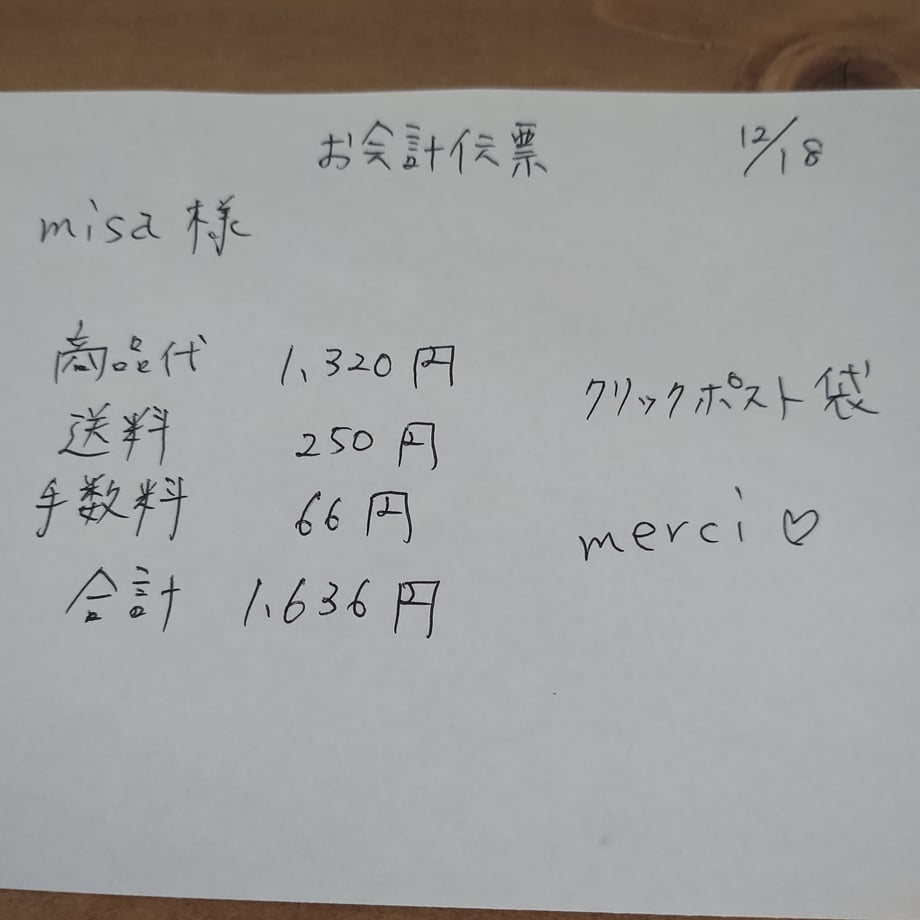 お会計伝票 12/18
misa 様
商品代 1,320円
送料 250円
手数料 66円
合計 1,636円
クリックポスト袋
merci ♡